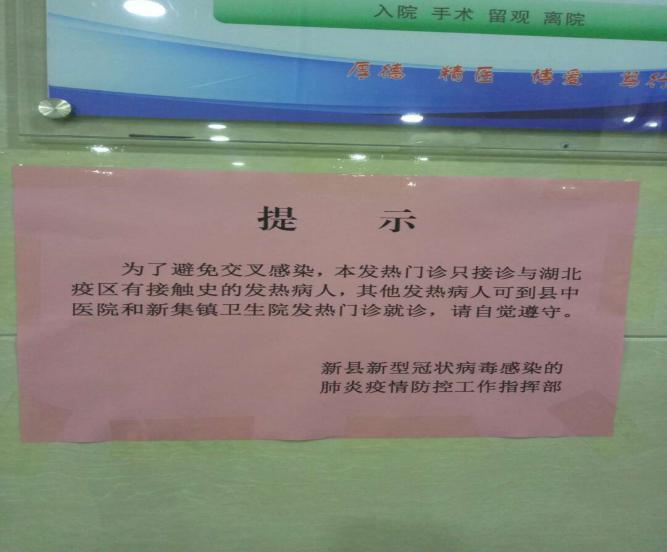 入院 手术 留观 离院
厚德 精医 博爱 笃行
提 示
为了避免交叉感染，本发热门诊只接诊与湖北
疫区有接触史的发热病人，其他发热病人可到县中
医院和新集镇卫生院发热门诊就诊，请自觉遵守。
新县新型冠状病毒感染的
肺炎疫情防控工作指挥部